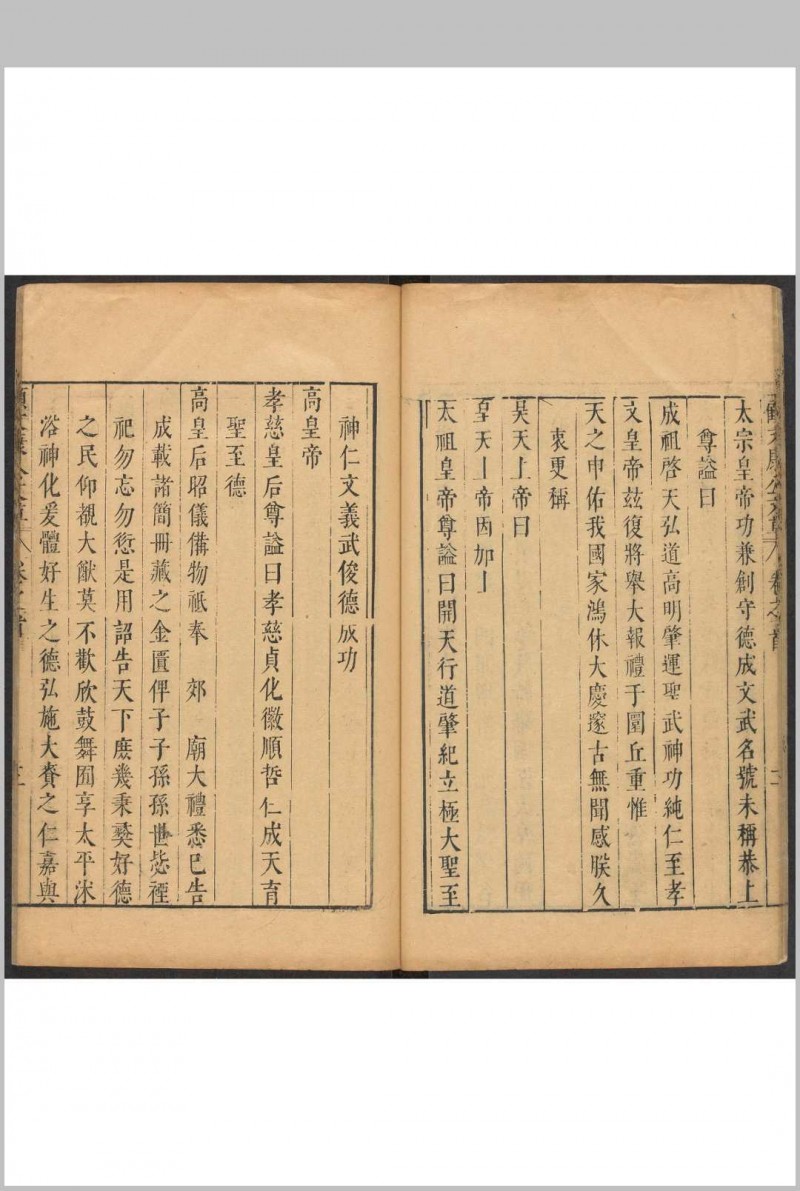 太宗皇帝功兼創守德成文武名號未稱恭上
尊謚曰
成祖啓天弘道高明肇運聖武神功純仁至孝
文皇帝兹復將舉大報禮于圜丘重惟
天之申佑我國家鴻休大慶邃古無聞感朕久
衷更稱
昊天上帝曰
皇天上帝因加上
太祖皇帝尊謚曰開天行道肇紀立極大聖至
神仁文義武俊德成功
高皇帝
孝慈皇后尊謚曰孝慈貞化徽順哲仁成天育
聖至德
高皇后昭儀備物祇奉 郊 廟大禮悉巳告
成載諸簡冊藏之金匱俾子子孫孫世毖禋
祀勿忘勿愆是用 詔告天下庶幾秉彝好德
之民仰覩大猷莫不歡欣鼓舞囿享太平沐
浴神化爰體好生之德弘施大賚之仁嘉與